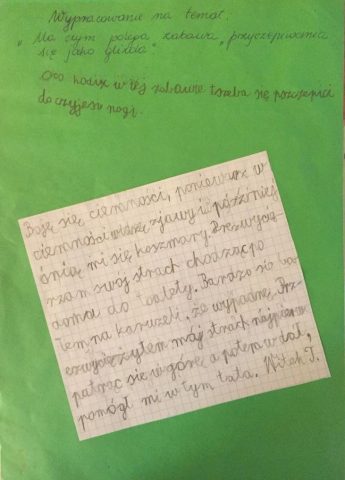 Wypracowanie na temat:
"Na czym polega zabawa "przyczepiania
się jako glizda"
Otóż w tej zabawie trzeba się przyczepić
do czyjejś nogi.
Boję się ciemności, ponieważ w
ciemności widzę zjawy i później
śnią mi się koszmary. Przezwycię-
żam swój strach chodząc po
domu do toalety. Bardzo się ba-
łem na karuzeli, że wypadnę. Prz-
ezwyciężyłem mój strach najpierw
patrząc się w górę a potem w dal,
pomógł mi w tym tata. Witek T.